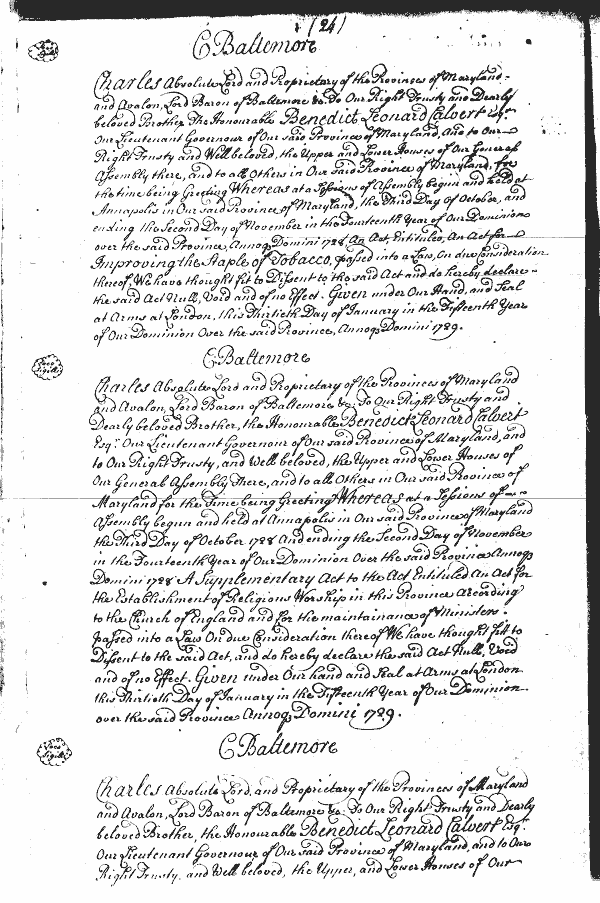 (24)
C Baltemore
Charles Absolute Lord and Proprietary of the Provinces of Maryland
and Avalon, Lord Baron of Baltemore &c. To Our Right Trusty and Dearly
beloved Brother, the Honourable Benedict Leonard Calvert Esqr.
Our Lieutenant Governour of Our said Province of Maryland, and to Our
Right Trusty and Well beloved, the Upper and Lower Houses of Our General
Assembly there, and to all Others in Our said Province of Maryland, for
the time being Greeting Whereas at a Session of Assembly begun and held at
Annapolis in Our said Province of Maryland, the Third Day of October, and
ending the Second Day of November in the Fourteenth Year of Our Dominion
over the said Province, Annoq Domini 1728 An Act, Entituled, An Act for
Improving the Staple of Tobacco, passed into a Law, On due Consideration
thereof, We have thought fit to Dissent to the said Act and do hereby declare
the said Act Null, Void and of no Effect. Given under Our Hand, and Seal
at Arms at London, this Thirtieth Day of January in the Fifteenth Year
of Our Dominion Over the said Province, Annoq Domini 1729.
C Baltemore
Loco
Sigilli
Charles Absolute Lord and Proprietary of the Provinces of Maryland
and Avalon, Lord Baron of Baltemore &c. To Our Right Trusty and
Dearly beloved Brother, the Honourable Benedict Leonard Calvert
Esqr. Our Lieutenant Governour of Our said Province of Maryland, and
to Our Right Trusty, and Well beloved, the Upper and Lower Houses of
Our General Assembly There, and to all Others in Our said Province of
Maryland for the Time being Greeting Whereas at a Session of
Assembly begun and held at Annapolis in Our said Province of Maryland
the Third Day of October 1728 And ending the Second Day of November
in the Fourteenth Year of Our Dominion Over the said Province Annoq
Domini 1728 A Supplementary Act to the Act Entituled An Act for
the Establishment of Religious Worship in this Province According
to the Church of England and for the maintainance of Ministers.
passed into a Law On due Consideration thereof We have thought fit to
Dissent to the said Act, and do hereby declare the said Act Null, Void
and of no Effect. Given under Our hand and Seal at Arms at London
this Thirtieth Day of January in the Fifteenth Year of Our Dominion
over the said Province Annoq Domini 1729.
C Baltemore
Loco
Sigilli
Charles Absolute Lord, and Proprietary of the Provinces of Maryland
and Avalon, Lord Baron of Baltemore &c. To Our Right Trusty and Dearly
beloved Brother, the Honourable Benedict Leonard Calvert Esqr.
Our Lieutenant Governour of Our said Province of Maryland, and to Our
Right Trusty, and Well beloved, the Upper, and Lower Houses of Our